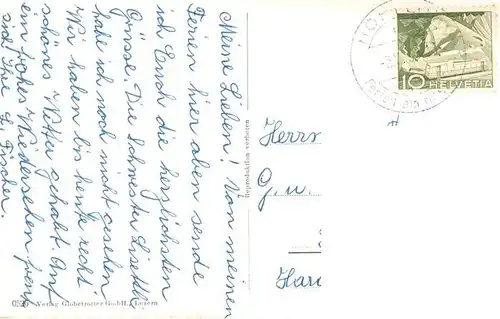 Meine Lieben! Von meinen
Ferien hier oben sende
ich Euch die herzlichsten
Grüsse. Die Schwester Liseth
habe ich noch nicht gesehen
Wir haben bis heute recht
schönes Wetter gehabt. Auf
ein frohes Wiedersehen freu
sich Ihre L. Fischer.
Reproduktion verboten
Verlag Globetrotter GmbH., Luzern
10 HELVETIA
Herrn
G. u.